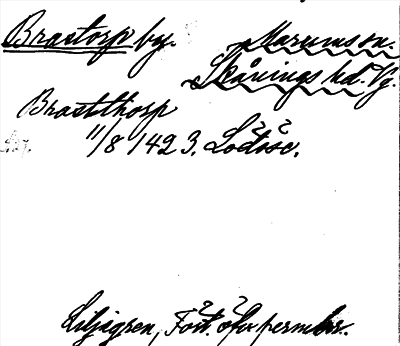 Brastorp by. Marums sn.
Skånings hd. Vg.
Brastthorp
11/8 1423. Lödöse.
Liljegren, Fört. öfv permbr.